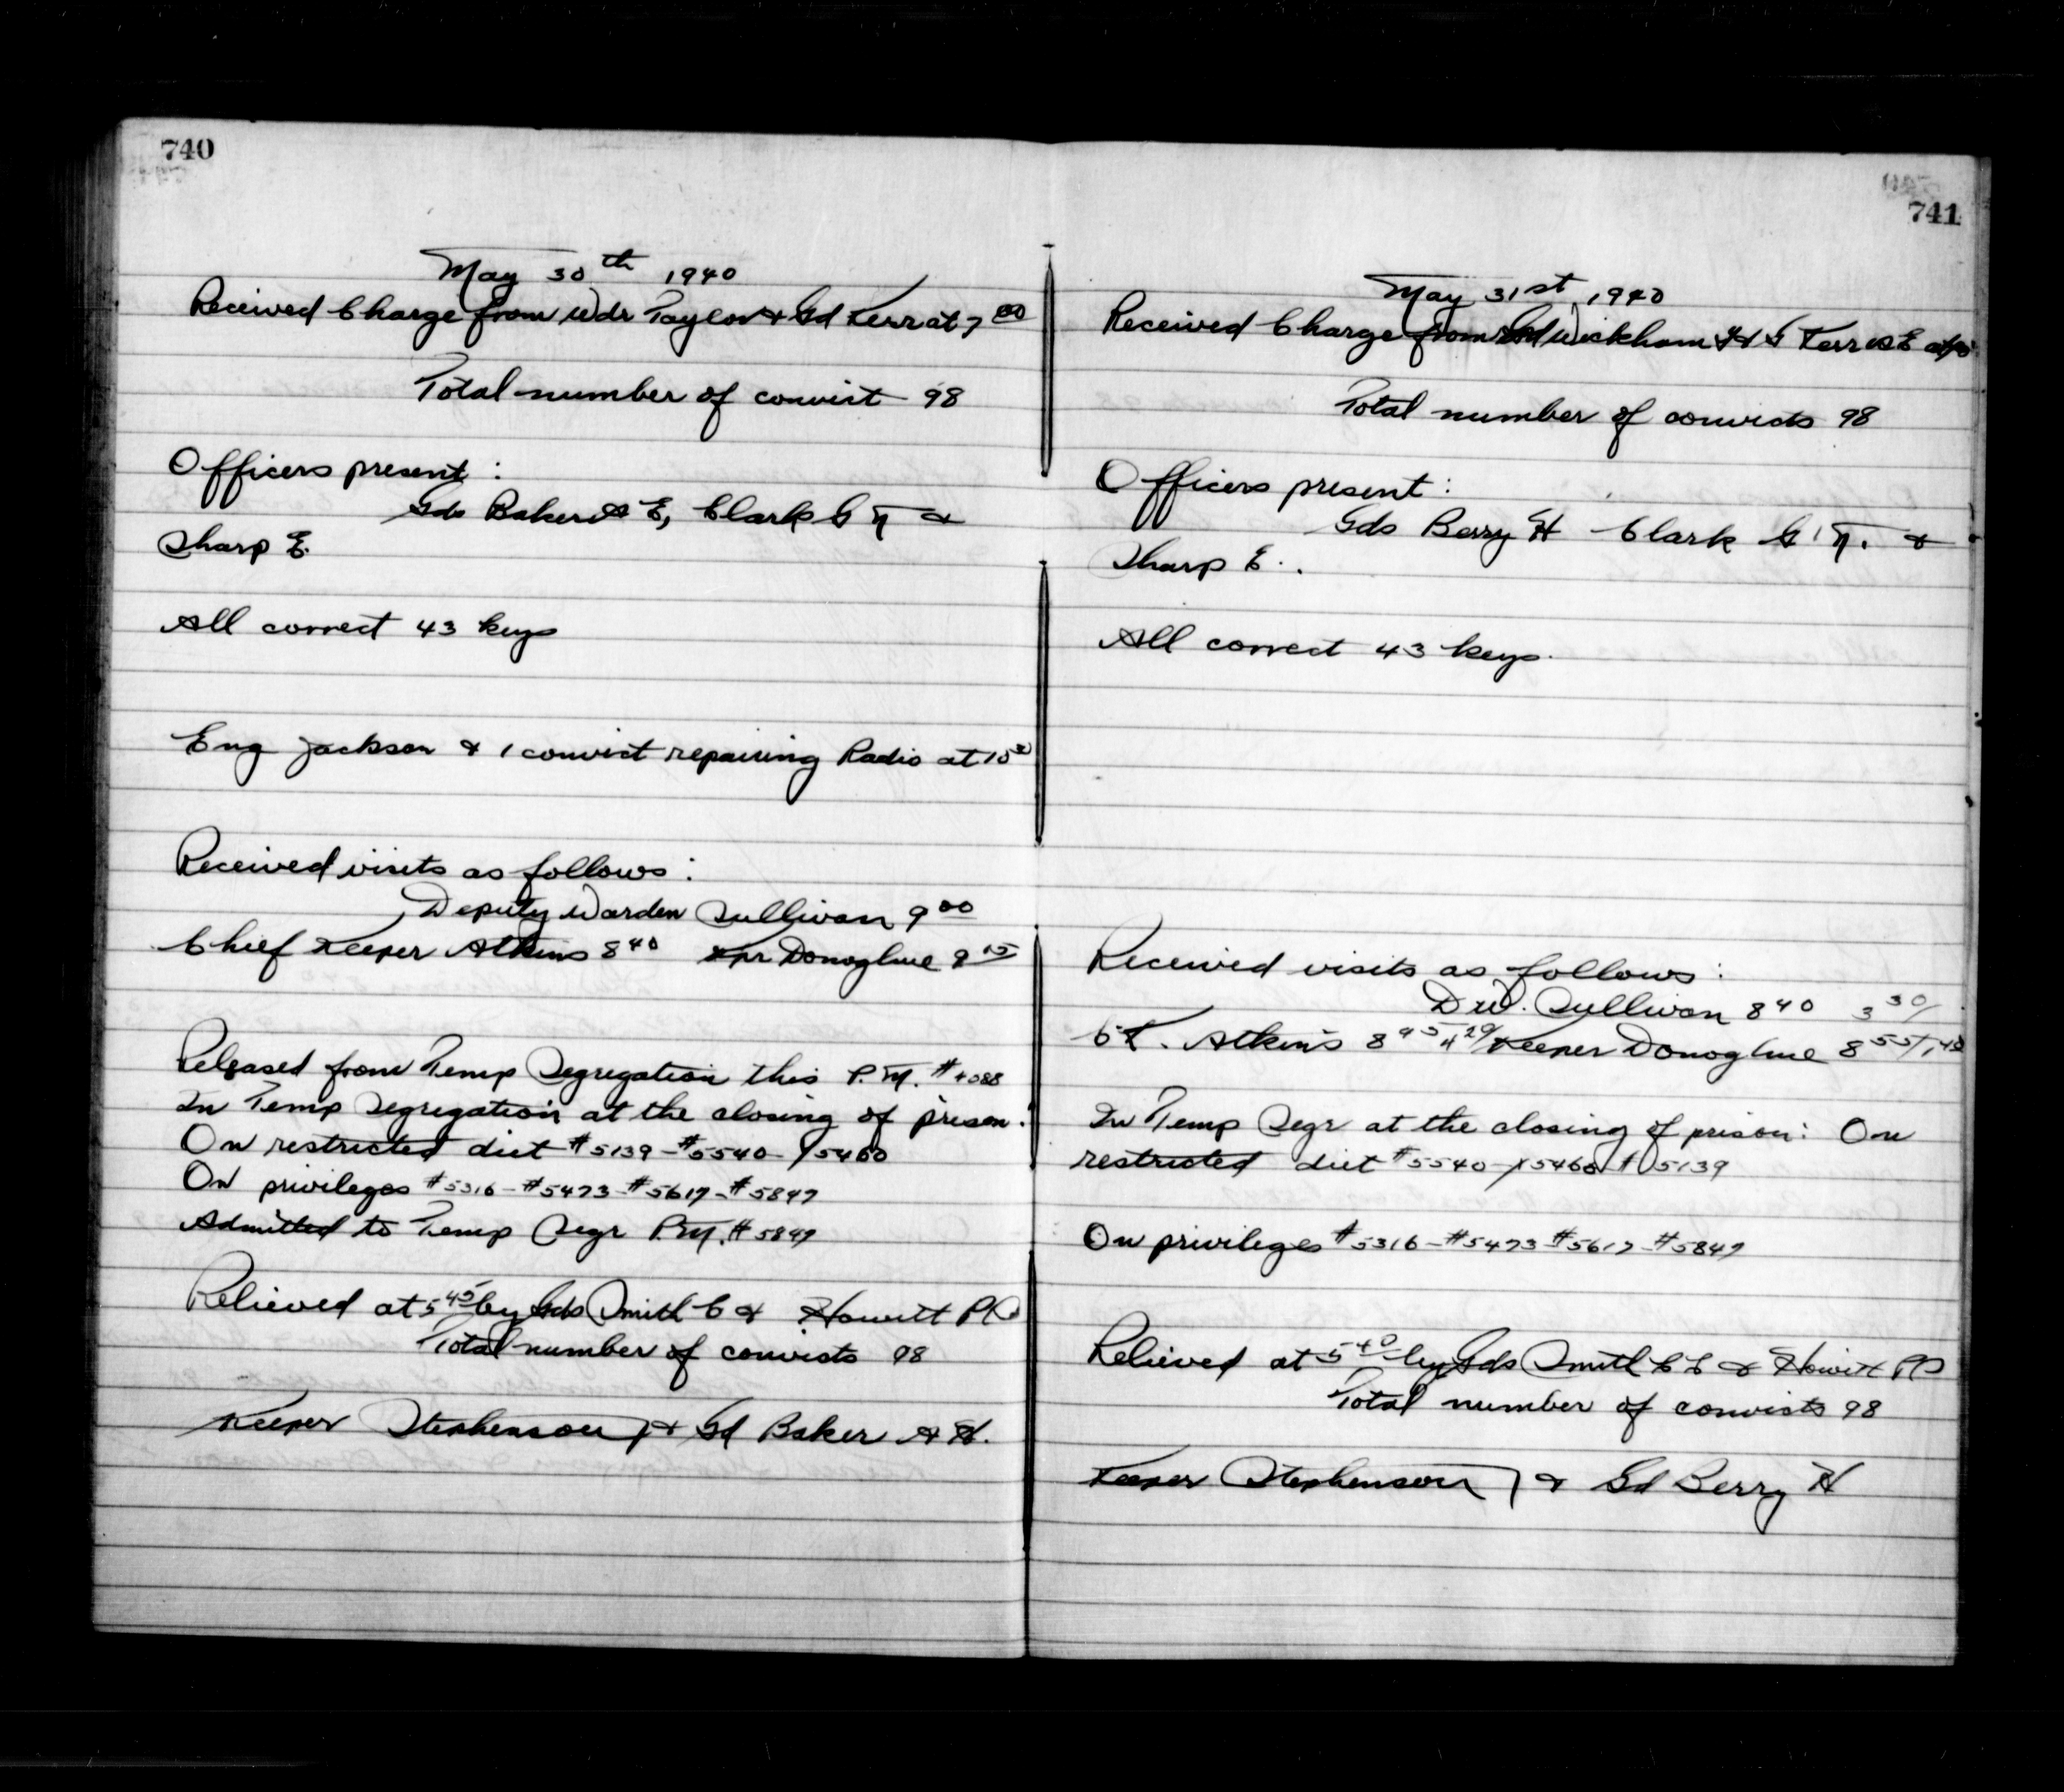 740
May 30th 1940
Received Charge from Wdr Taylor & Gd Kerr at 7 00
Total number of convict 98
Officers present :
Gds Baker A E, Clark G N &
Sharp E.
All correct 43 keys
Eng Jackson & 1 convict repairing Radio at
Received visits as follows :
Deputy Warden Sullivan 9 00
Chief Keeper Atkins 8 40 Kpr Donoghue 9 15
Released from Temp Segregation this P.M. #4088
In Temp Segregation at the closing of prison :
On restricted diet #5139 - #5540 - #5460
On privileges #5316 - #5473 - #5617 - #5847
Admitted to Temp Segr P.M. #5847
Relieved at 5 45 by Gds Smith C & Howitt
Total number of convicts 98
Keeper Stephenson J & Gd Baker A H.
741
May 31st, 1940
Received Charge from Gd Wickham & Kerr
Total number of convicts 98
Officers present :
Gds Berry H Clark G. N. &
Sharp E.
All correct 43 keys.
Received visits as follows :
D.W. Sullivan 8 40 3 30/
C K. Atkins 8 45 Keeper Donoghue 8 55/
In Temp Segr at the closing of prison : On
restricted diet #5540 - #5460 # 5139
On privileges #5316 - #5473 - #5617 - #5847
Relieved at 5 40 by Gds Smith & Howitt
Total number of convicts 98
Keeper Stephenson J & Gd Berry H